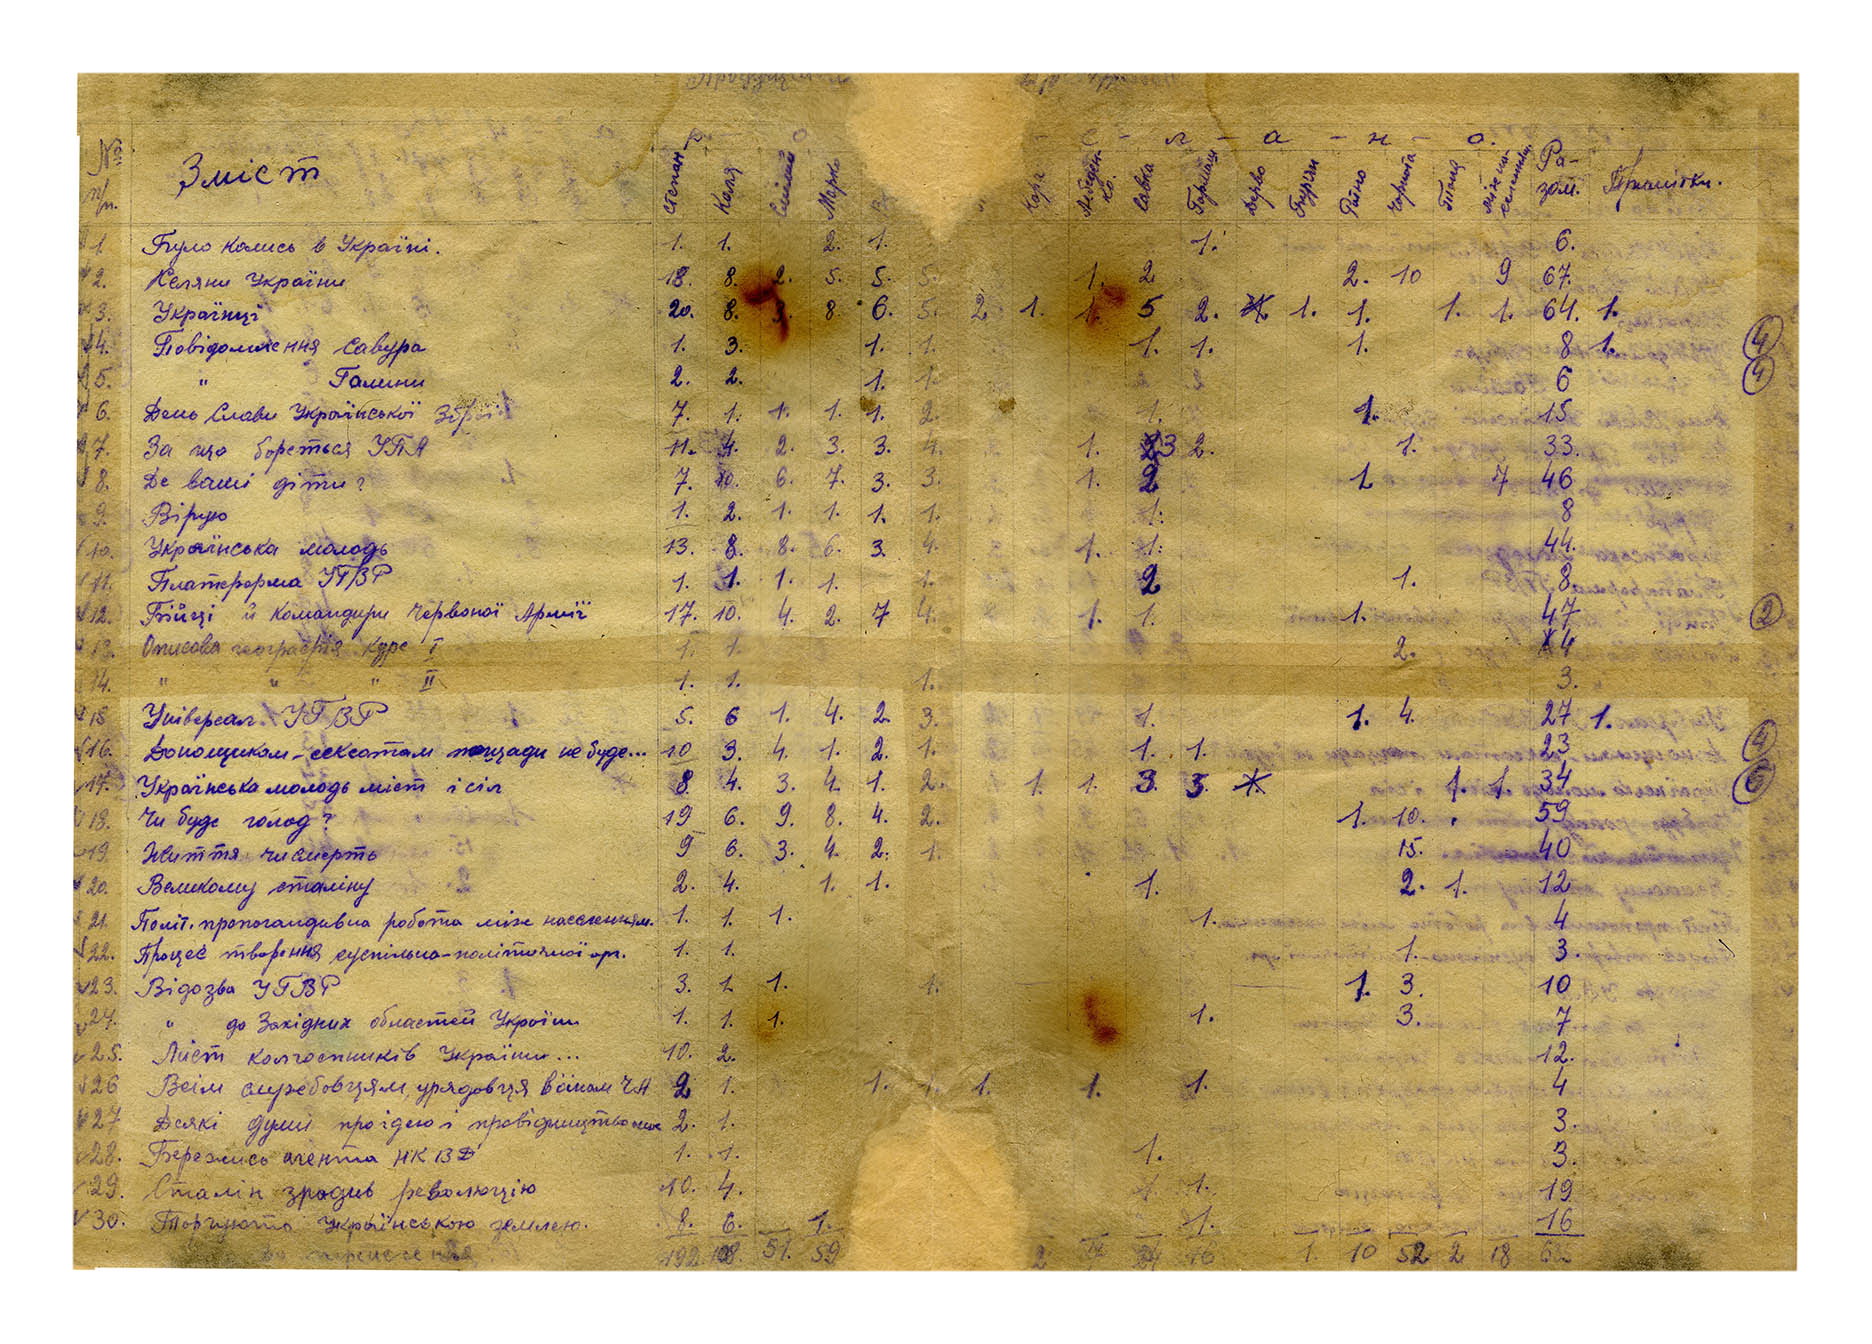 с - л - а - н - о.
№ п/п. Зміст Степан Коля Сміли Марко Чора Лебеденко. Савка Гармаш Дерво Гнурін Рійно Чорнота Тома між населенням Разом. Примітки.
1. Було колись в Україні. 1. 1. 2. 1. 1. 6.
2. Селяни України 18. 8. 2. 5. 5. 5. 1. 2 2. 10 9 67.
3. Українці 20. 8. 3. 8. 6. 5. 2. 1. 1. 5 2. 1. 1. 1. 1. 64. 1.
4. Повідомлення Савура 1. 3. 1. 1. 1. 1. 1. 8 1. 4
5. " Галини 2. 2. 1. 1. 6 4
6. День Слави Української Зброї 7. 1. 1. 1. 1. 2. 1. 1. 15
7. За що бореться УПА 11. 4. 2. 3. 3. 4. 1. 3 2. 1. 33.
8. Де ваші діти? 7. 10. 6. 7. 3. 3. 1. 2 1 7 46
9. Вірую 1. 2. 1. 1. 1. 1. 1. 8
10. Українська молодь 13. 8. 8. 6. 3. 4. 1. 1. 44.
11. Платформа УГВР 1. 1. 1. 1. 1. 2 1. 8.
12. Бійці й командири Червоної Армії 17. 10. 4. 2. 7 4. 1. 1. 1. 47 2
13. Описова географія курс I 1. 1. 2. 4
14. " " " II 1. 1. 1. 3.
15 Універсал УГВР 5. 6 1. 4. 2. 3. 1. 1. 4. 27 1.
16. Донощикам-сексотам пощади не буде... 10 3. 4. 1. 2. 1. 1. 1. 23 4
17. Українська молодь міст і сіл 8. 4. 3. 4. 1. 2. 1. 1. 3. 3. 1. 1. 34
18. Чи буде голод? 19 6. 9. 8. 4. 2. 1. 10. 59
19 Життя чи смерть 9 6. 3. 4. 2. 1. 15. 40
20. Великому сталіну 2. 4. 1. 1. 1. 2. 1. 12
21. Політ. пропогандивна робота між населенням. 1. 1. 1. 1. 4
22. Процес творення суспільно-політичної орг. 1. 1. 1. 3.
23. Відозва УГВР 3. 1. 1. 1. 1. 3. 10
24. " до Західних областей України 1. 1. 1. 1. 3. 7
25. Лист колгоспників України... 10. 2. 12.
26 Всім службовцям, урядовця воінам ЧА 2 1. 1. 1. 1. 1. 1. 4
27 Деякі думи про ідею і провідництво 2. 1. 3.
28. Бережись агента НКВД 1. 1. 1. 3.
29. Сталін зродив революцію 10. 4. 1 1. 19
30. Торгують Українською землею. 8. 6. 1. 1. 16
192. 51. 59 2 24 16 1. 10 52 2 18